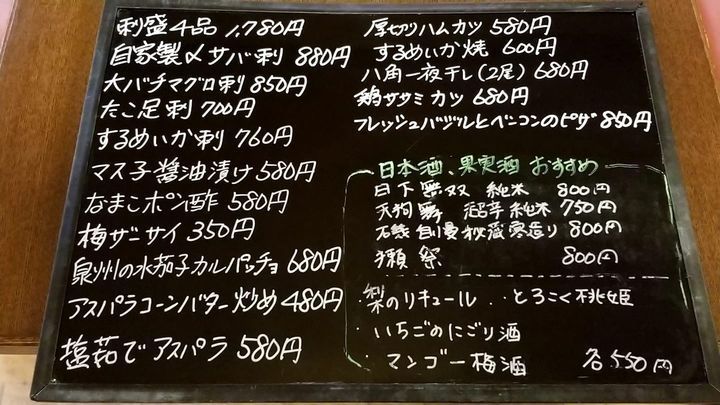 刺盛4品 1,780円
自家製〆サバ刺 880円
大バチマグロ刺 850円
たこ足刺 700円
するめいか刺 760円
マス子醤油漬け 580円
なまこポン酢 580円
梅ザーサイ 350円
泉州の水茄子カルパッチョ 680円
アスパラコーンバター炒め 480円
塩茹でアスパラ 580円
厚切りハムカツ 580円
するめいか焼 600円
八角一夜干し(2尾) 680円
鶏ササミカツ 680円
フレッシュバジルとベーコンのピザ 850円
日本酒、果実酒 おすすめ
日下無双 純米 800円
天狗舞 超辛純米 750円
自慢 秘蔵寒造り 800円
獺祭 800円
・梨のリキュール ・とろこく桃姫
・いちごのにごり酒
・マンゴー梅酒 各550円